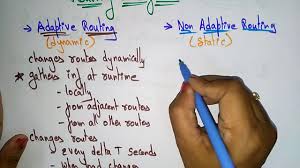 → Adaptive Routing
(dynamic)
changes routes dynamically
* gathers inf at runtime
- locally
- from adjacent routes
- from all other routes
changes routes
- every delta T seconds
- when load change
→ Non Adaptive Routing
(static)